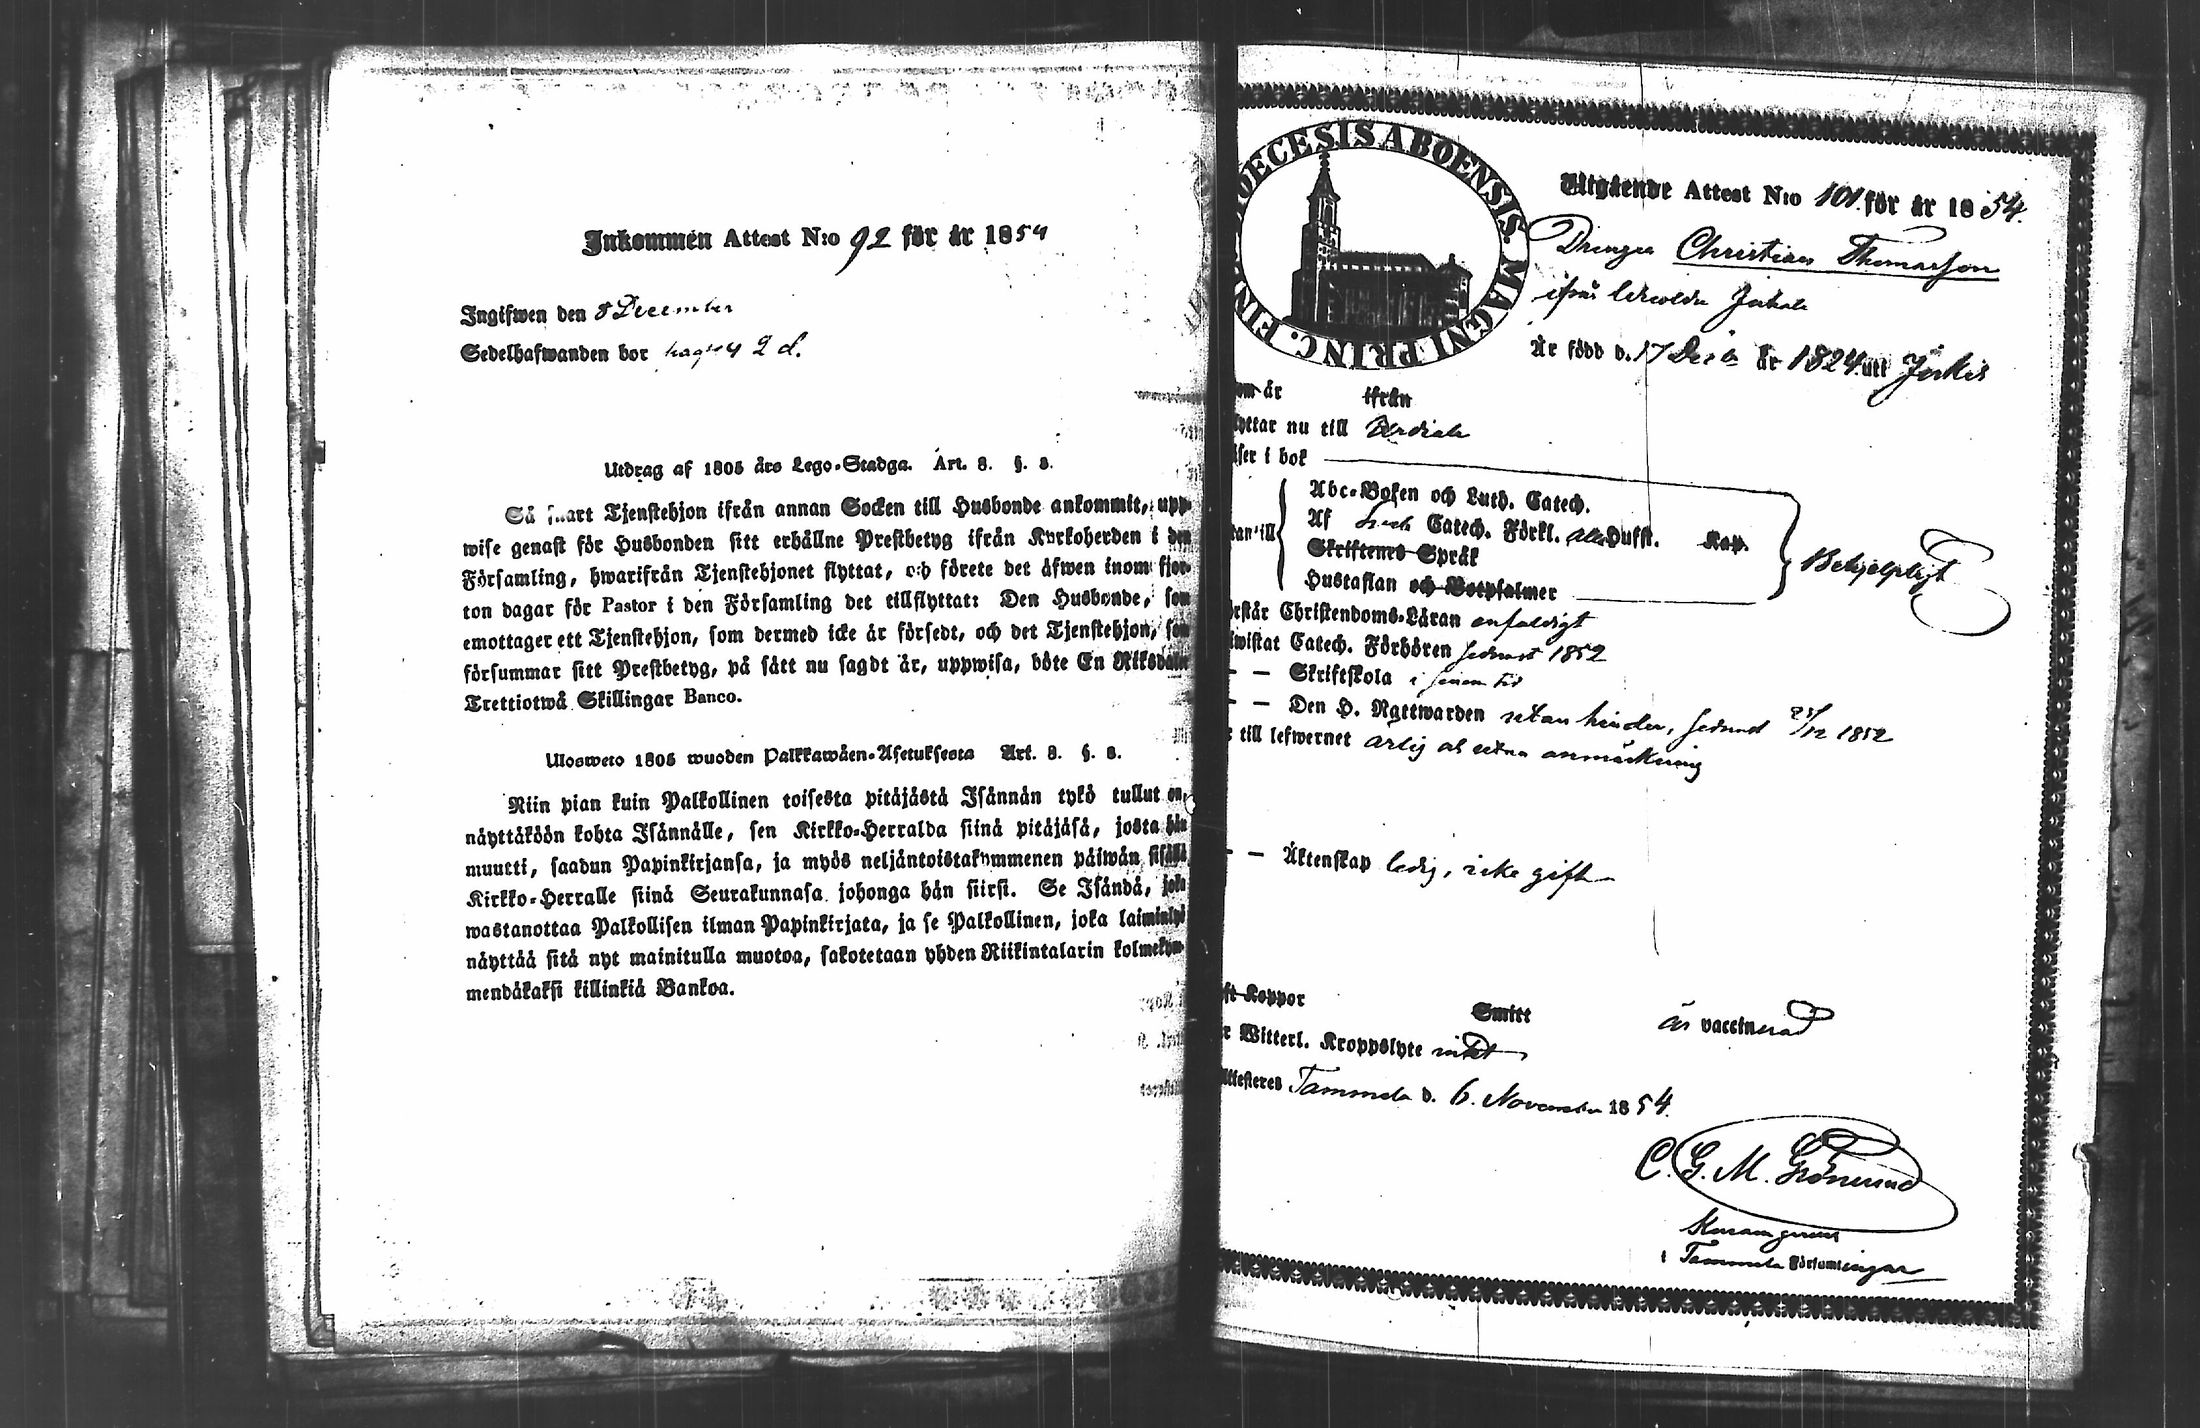 Inkommen Attest N:o 92 för år 1854
Ingifwen den 8 December
Sedelhafwanden bor 2 d.
Utdrag af 1805 års Lego-Stadga. Art. 8. §. 8.
Så snart Tjenstehjon ifrån annan Socken till Husbonde ankommit, upp-
wise genast för Husbonden sitt erhållne Prestbetyg ifrån Kyrkoherden i den
Församling, hwarifrån Tjenstehjonet flyttat, och förete det äfwen inom fjor-
ton dagar för Pastor i den Församling det tillflyttat: Den Husbonde, som
emottager ett Tjenstehjon, som dermed icke är försedt, och det Tjenstehjon, som
försummar sitt Prestbetyg, på sätt nu sagdt är, uppwisa, böte En Riksdaler
Trettiotwå Skillingar Banco.
Ulosweto 1805 wuoden Palkkawäen-Asetuksesta Art. 8. §. 8.
Niin pian kuin Palkollinen toisesta pitäjästä Isännän tykö tullut on,
näyttäköön kohta Isännälle, sen Kirkko-Herralda siinä pitäjäsä, josta hän
muutti, saadun Papinkirjansa, ja myös neljäntoistakymmenen päiwän sisällä
Kirkko-Herralle siinä Seurakunnasa johonga hän siirst. Se Isändä, joka
wastanottaa Palkollisen ilman Papinkirjata, ja se Palkollinen, joka laiminlyö
näyttää sitä nyt mainitulla muotoa, sakotetaan yhden Riikintalarin kolmekym-
mendäkaksi killinkiä Bankoa.
DIOECESIS ABOENSIS. MAGNI PRINC. FINL
Utgående Attest N:o 101 för år 1854.
Drengen Christian Thomasson
ifrån Jokela
Är född d. 17 Dec. år 1824 uti Jockis
om är ifrån
lyttar nu till Urdiala
äser i bok
Abc-Boken och Luth. Catech.
tantill Af Catech. Förkl. Hufst. Kap.
Skriftenes Språk
Hustaflan och Botpsalmer
Behjelpligt
örstår Christendoms-Läran enfaldigt
iwistat Catech. Förhören sednast 1852
— — Skriftskola i sinom tid
— — Den H. Nattwarden utan hinder, sednast /12 1852
r till lefwernet ärlig och utan anmärkning
— — Äktenskap ledig, icke gift
ft Koppor Smitt är vaccinerad
r Witterl. Kroppslyte intet
Attesteres Tammela d. 6. November 1854.
C. G. M. Grönlund
i Tammela Församlingar